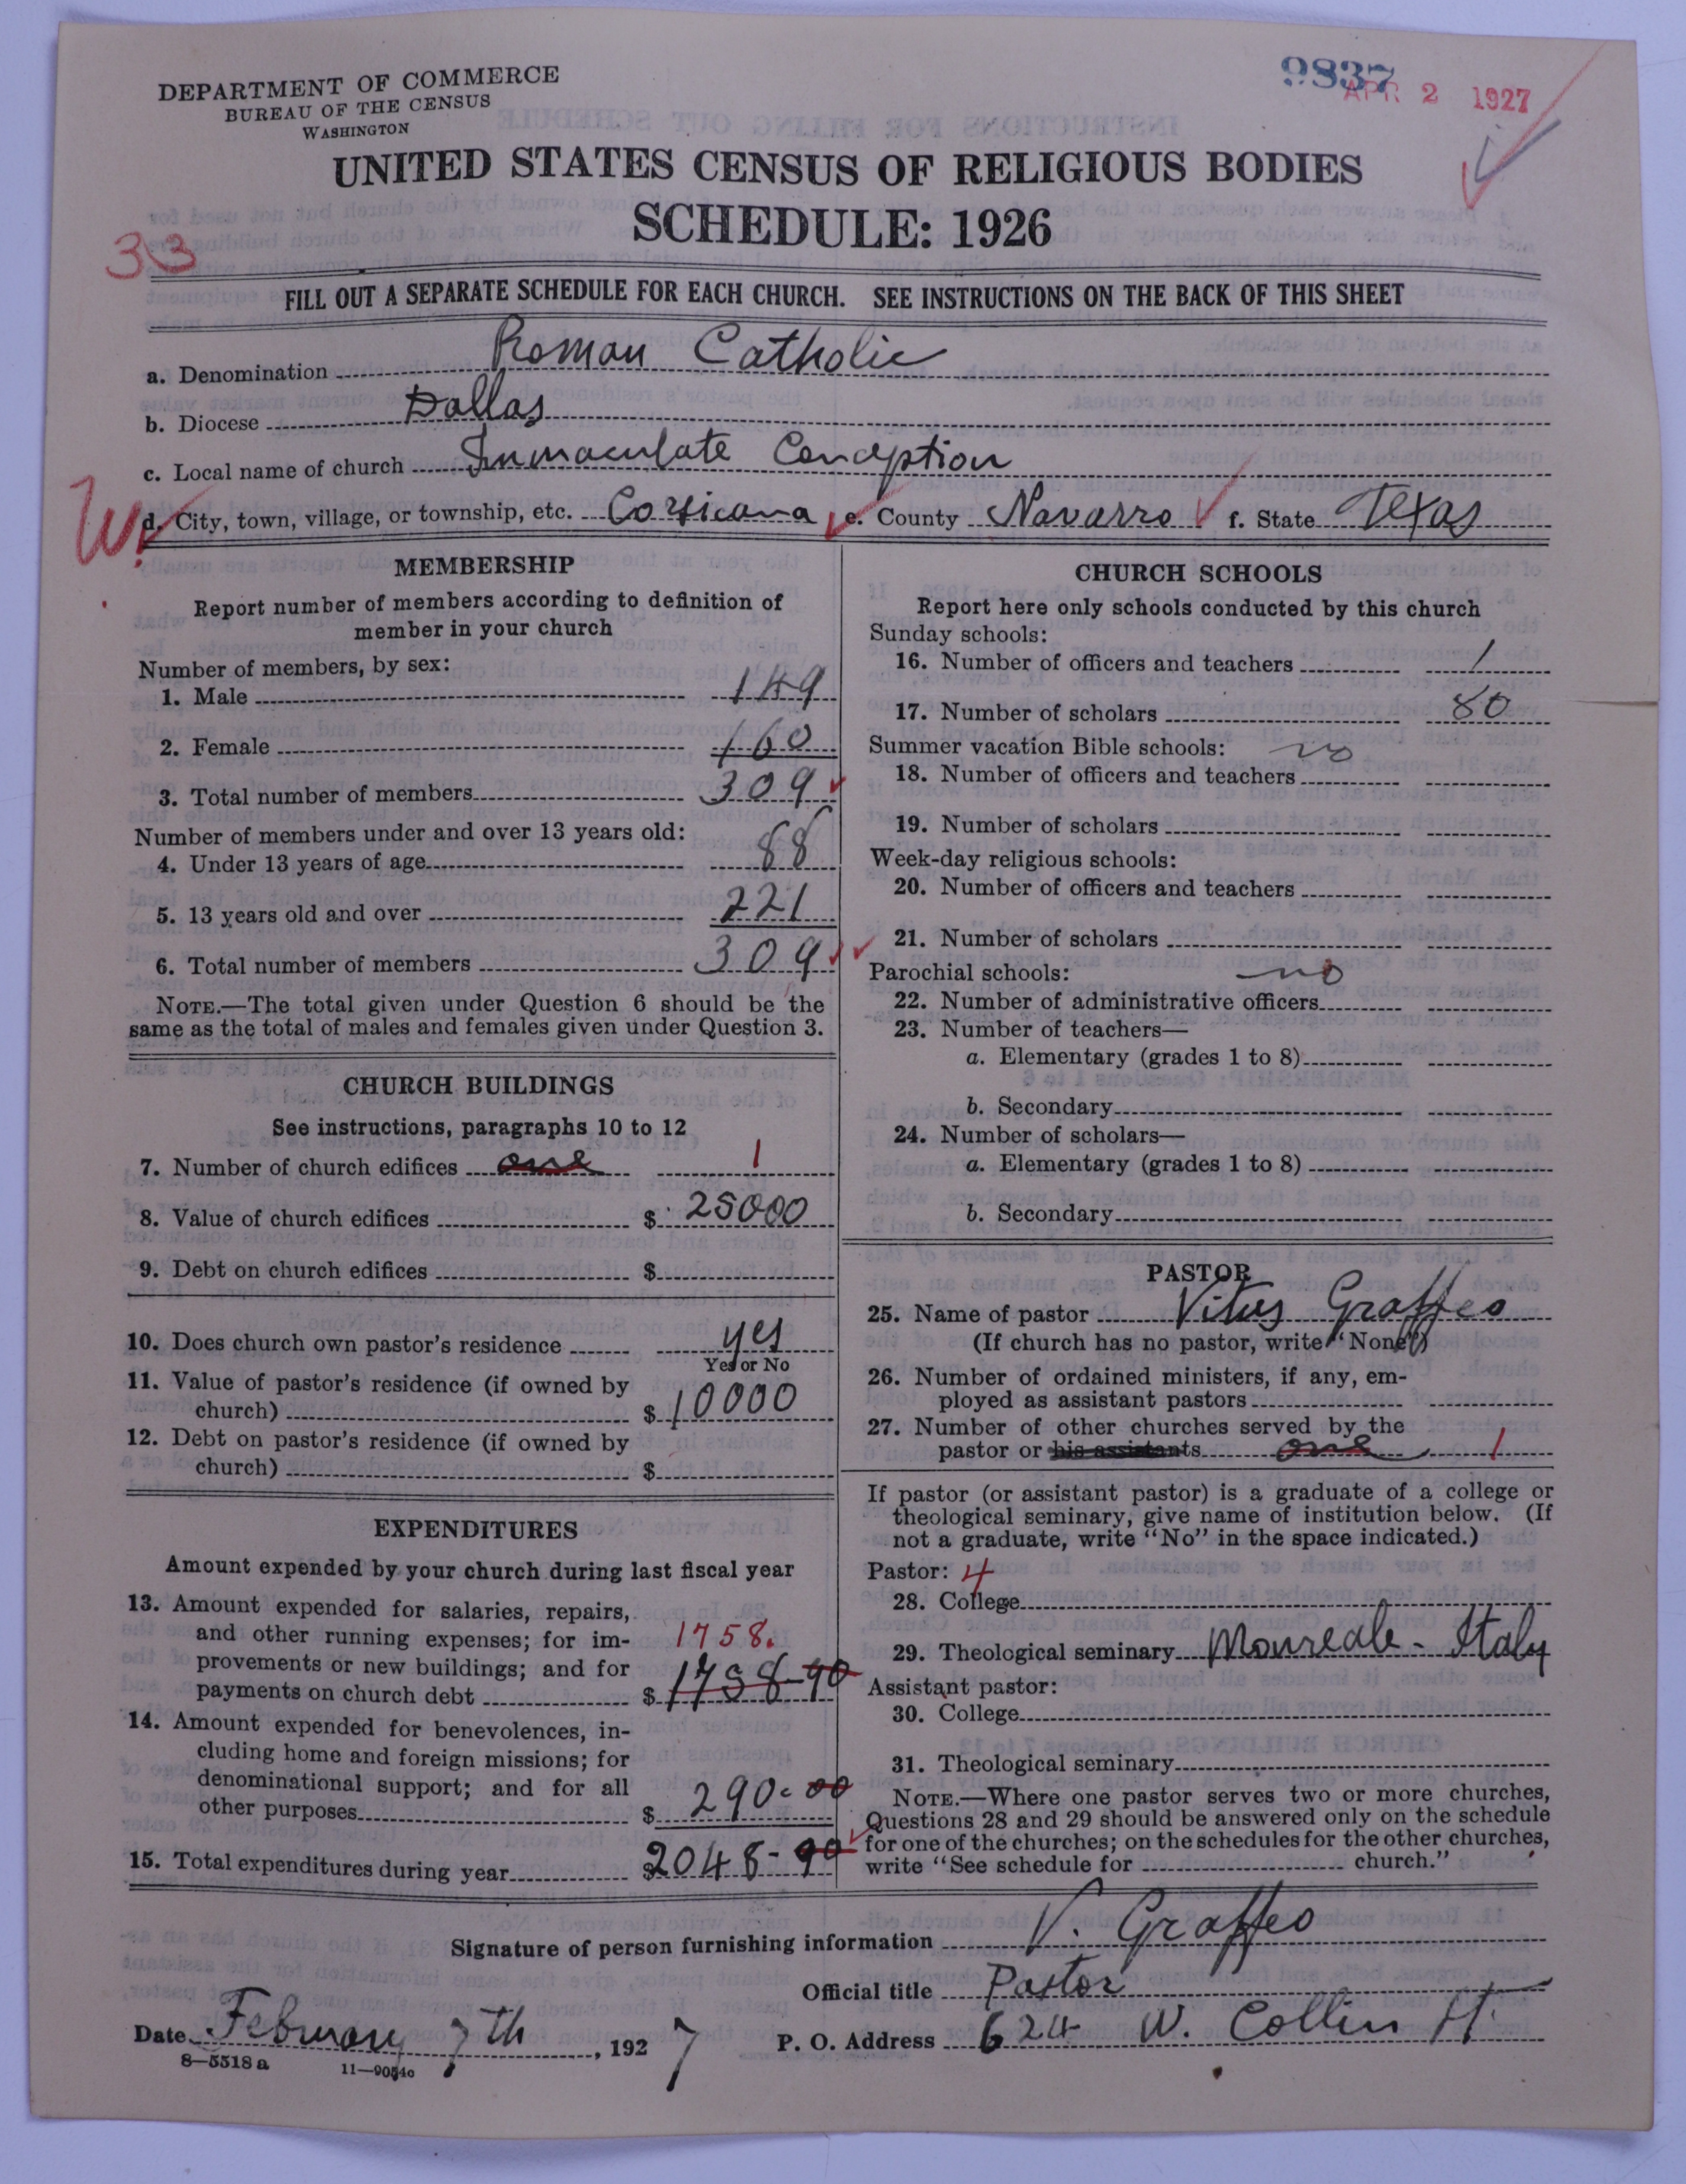 DEPARTMENT OF COMMERCE
BUREAU OF THE CENSUS
WASHINGTON
9837
APR 2 1927
UNITED STATES CENSUS OF RELIGIOUS BODIES
SCHEDULE: 1926
33
FILL OUT A SEPARATE SCHEDULE FOR EACH CHURCH. SEE INSTRUCTIONS ON THE BACK OF THIS SHEET
a. Denomination Roman Catholic
b. Diocese Dallas
c. Local name of church Immaculate Conception
W. d. City, town, village, or township, etc. Corsicana e. County Navarro f. State Texas
MEMBERSHIP
Report number of members according to definition of
member in your church
Number of members, by sex:
1. Male 149
2. Female 160
3. Total number of members 309
Number of members under and over 13 years old:
4. Under 13 years of age 88
5. 13 years old and over 221
6. Total number of members 309
NOTE.—The total given under Question 6 should be the
same as the total of males and females given under Question 3.
CHURCH BUILDINGS
See instructions, paragraphs 10 to 12
7. Number of church edifices one 1
8. Value of church edifices $ 25000
9. Debt on church edifices $
10. Does church own pastor's residence yes
Yes or No
11. Value of pastor's residence (if owned by
church) $ 10000
12. Debt on pastor's residence (if owned by
church) $
EXPENDITURES
Amount expended by your church during last fiscal year
13. Amount expended for salaries, repairs,
and other running expenses; for im- 1758.
provements or new buildings; and for
payments on church debt $ 1758-90
14. Amount expended for benevolences, in-
cluding home and foreign missions; for
denominational support; and for all
other purposes $ 290-00
15. Total expenditures during year $2048-90
CHURCH SCHOOLS
Report here only schools conducted by this church
Sunday schools:
16. Number of officers and teachers 1
17. Number of scholars 80
Summer vacation Bible schools: no
18. Number of officers and teachers
19. Number of scholars
Week-day religious schools:
20. Number of officers and teachers
21. Number of scholars
Parochial schools: no
22. Number of administrative officers
23. Number of teachers—
a. Elementary (grades 1 to 8)
b. Secondary
24. Number of scholars—
a. Elementary (grades 1 to 8)
b. Secondary
PASTOR
25. Name of pastor Vitus Graffeo
(If church has no pastor, write "None")
26. Number of ordained ministers, if any, em-
ployed as assistant pastors
27. Number of other churches served by the
pastor or his assistants one 1
If pastor (or assistant pastor) is a graduate of a college or
theological seminary, give name of institution below. (If
not a graduate, write "No" in the space indicated.)
Pastor: 4
28. College
29. Theological seminary Monreale - Italy
Assistant pastor:
30. College
31. Theological seminary
NOTE.—Where one pastor serves two or more churches,
Questions 28 and 29 should be answered only on the schedule
for one of the churches; on the schedules for the other churches,
write "See schedule for church."
Signature of person furnishing information V. Graffeo
Official title Pastor
Date February 7th, 1927 P. O. Address 624 W. Collin St.
8—5518 a 11—9054c